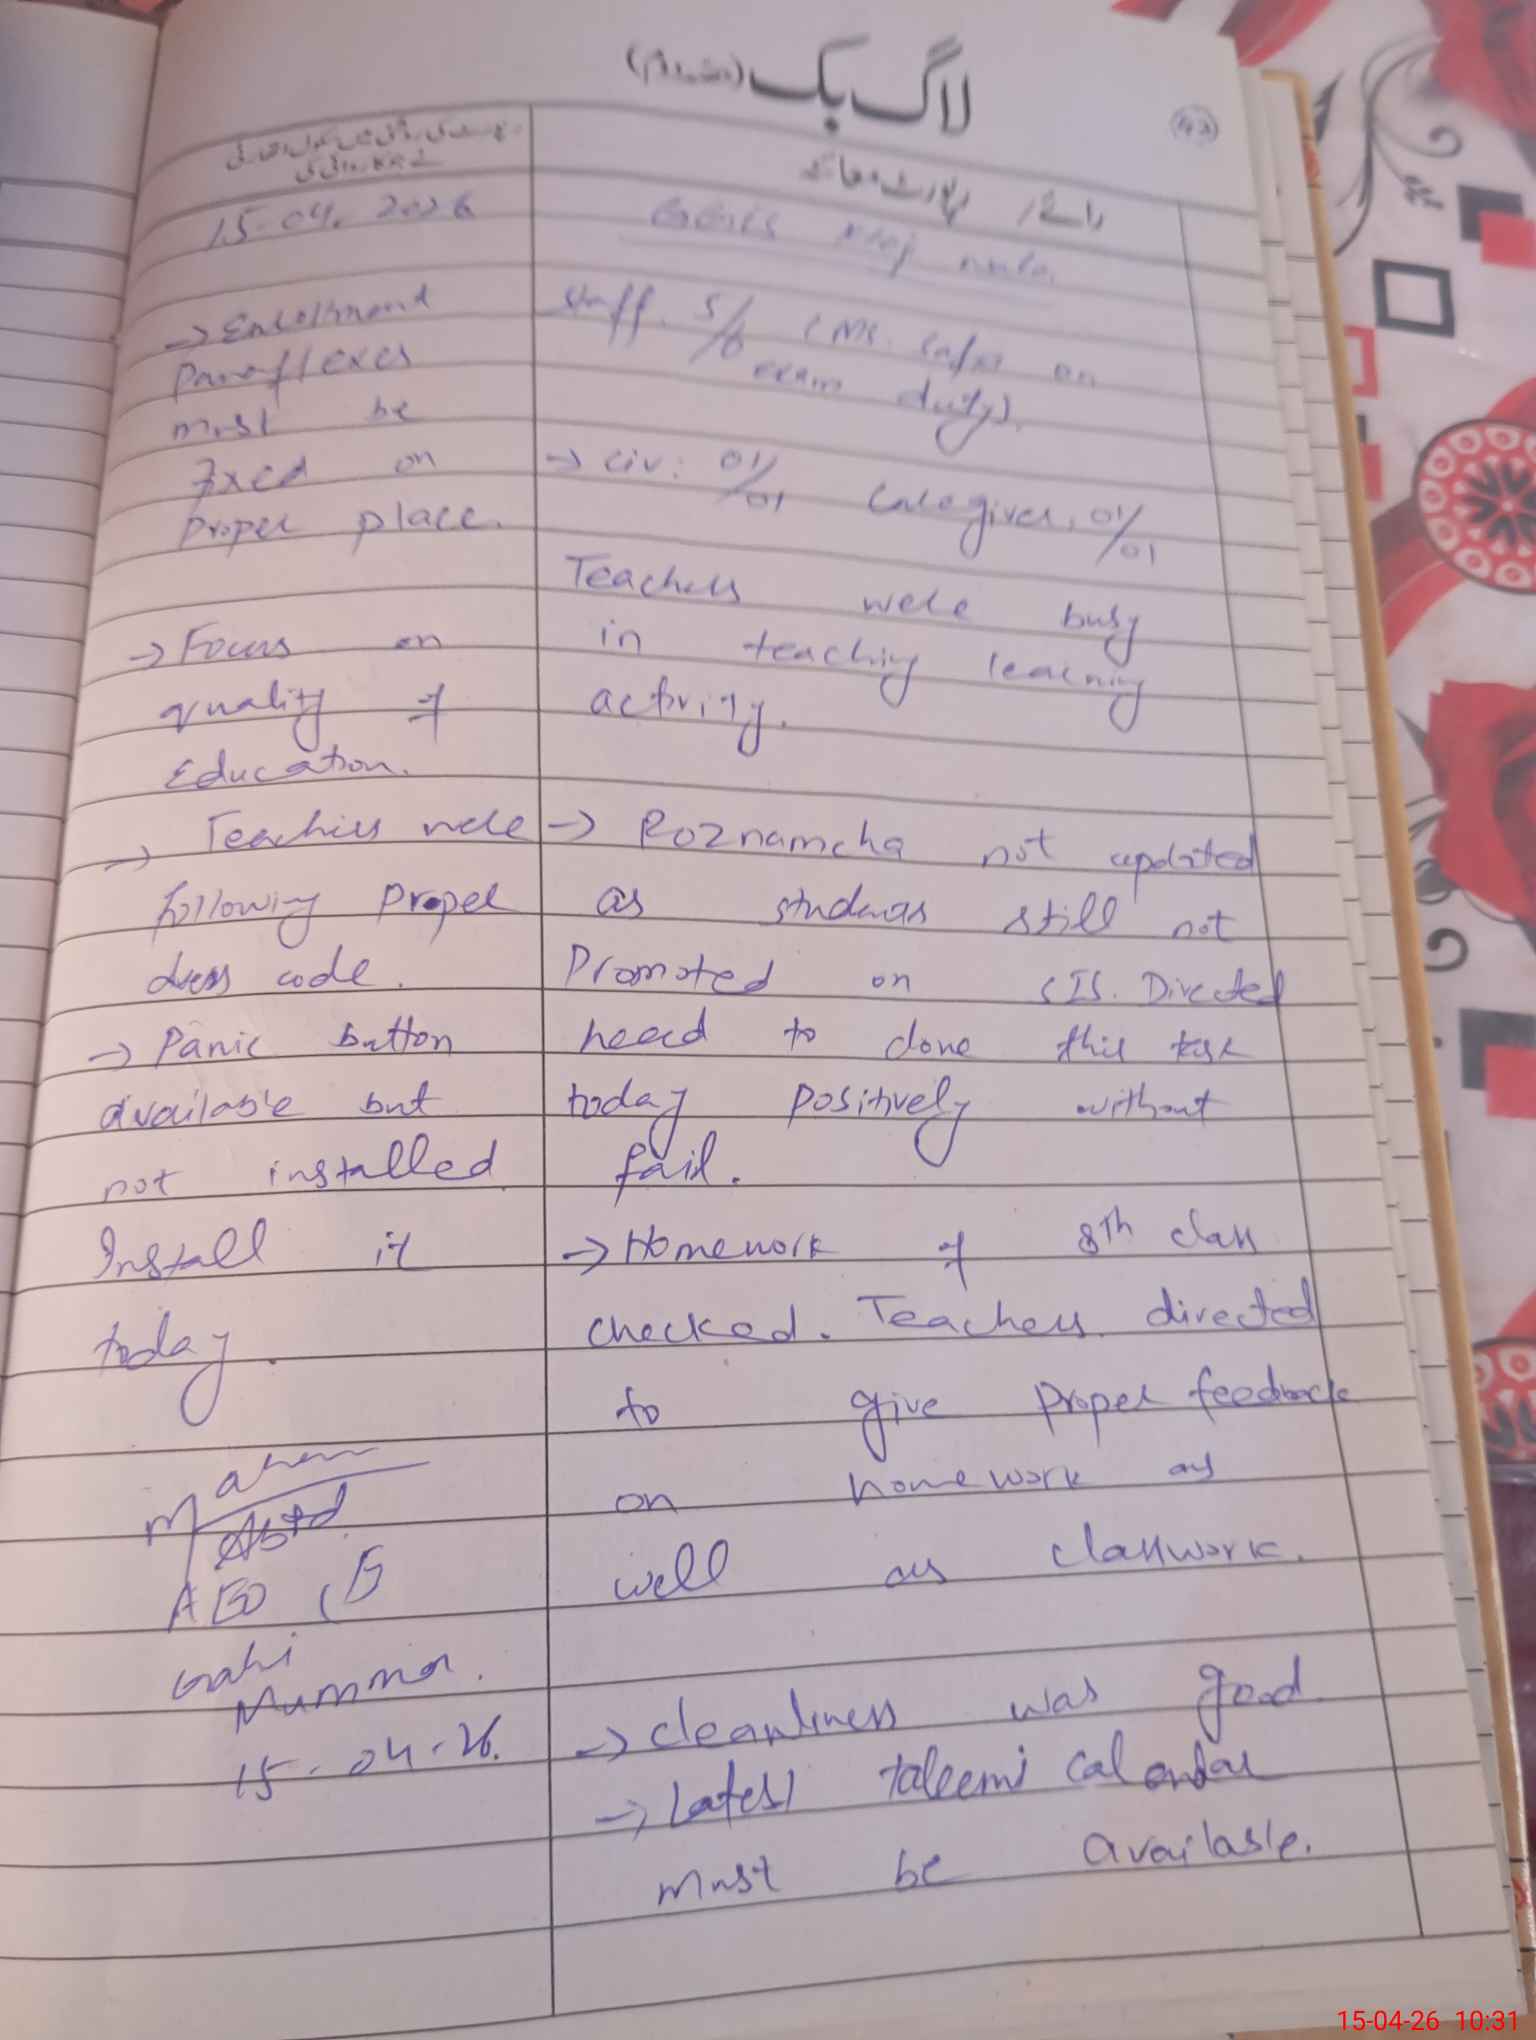 لاگ بک
42
رائے / رپورٹ معائنہ
15-04-2026
→ Enrollment
Panaflexes
must be
fixed on
proper place.
→ Focus on
quality of
Education.
→ Teachers were
following proper
dress code.
→ Panic button
available but
not installed.
Install it
today.
AEO
Mummon.
15-04-26.
Staff. 5/6 (Mr. on
exam duty).
→ Civ: 01/01 Caregiver, 01/01
Teachers were busy
in teaching learning
activity.
→ Roznamcha not updated
as students still not
Promoted on SIS. Directed
head to done this task
today positively without
fail.
→ Homework of 8th class
checked. Teachers directed
to give proper feedback
on homework as
well as classwork.
→ cleanliness was good
→ Latest taleemi calendar
must be available.
15-04-26 10:31